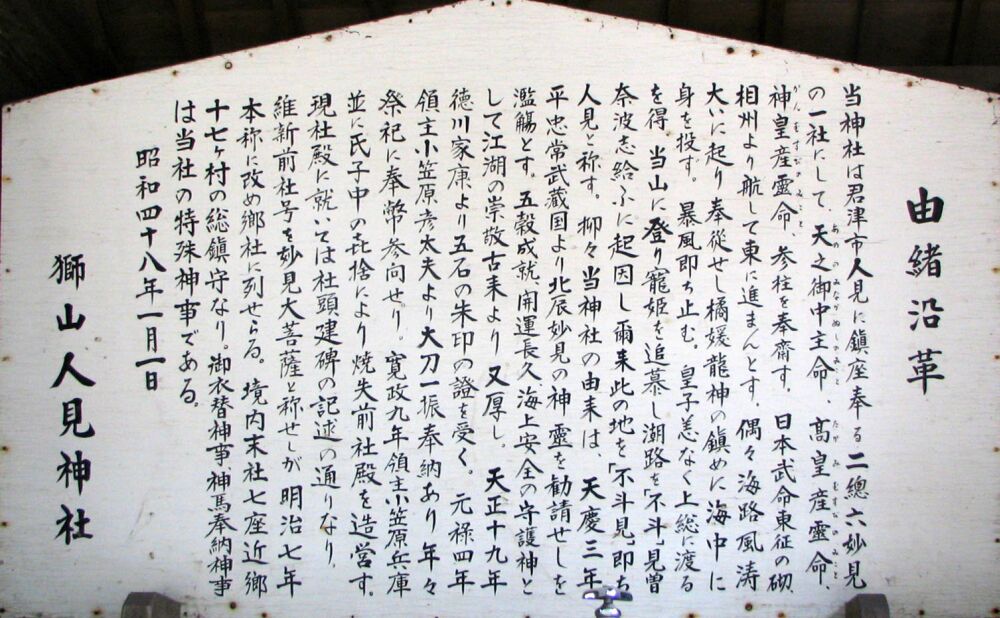 由緒沿革
当神社は君津市人見に鎮座奉る二總六妙見
の一社にして、天之御中主命、高皇産靈命、
あめのみなかぬしみこと
たかみむすびのみこと
神皇産靈命、参柱を奉齋す。日本武命東征の砌、
かんむすびのみこと
相州より航して東に進まんとす。偶々海路風涛
大いに起り奉従せし橘媛龍神の鎮めに海中に
身を投ず。暴風即ち止む。皇子恙なく上總に渡る
を得、当山に登り寵姫を追慕し湖路を「不斗」見曽
奈波志給ふに起因し爾来此の地を「不斗見」即ち
人見と祢す。抑々当神社の由来は、天慶三年
平忠常武蔵国より北辰妙見の神靈を勧請せしを
濫觴とす。五穀成就、開運長久、海上安全の守護神と
して江湖の崇敬古来より又厚し。天正十九年
徳川家康より五石の朱印の證を受く。元禄四年
領主小笠原彦太夫より大刀一振奉納あり年々
祭祀に奉幣参向せり。寛政九年領主小笠原兵庫
並に氏子中の㐂捨により焼失前社殿を造営す。
現社殿に就いては社頭建碑の記述の通りなり。
維新前社号を妙見大菩薩と祢せしが明治七年
本祢に改め郷社に列せらる。境内末社七座近郷
十七ヶ村の総鎮守なり。御衣替神事、神馬奉納神事
は当社の特殊神事である。
昭和四十八年一月一日
獅山人見神社